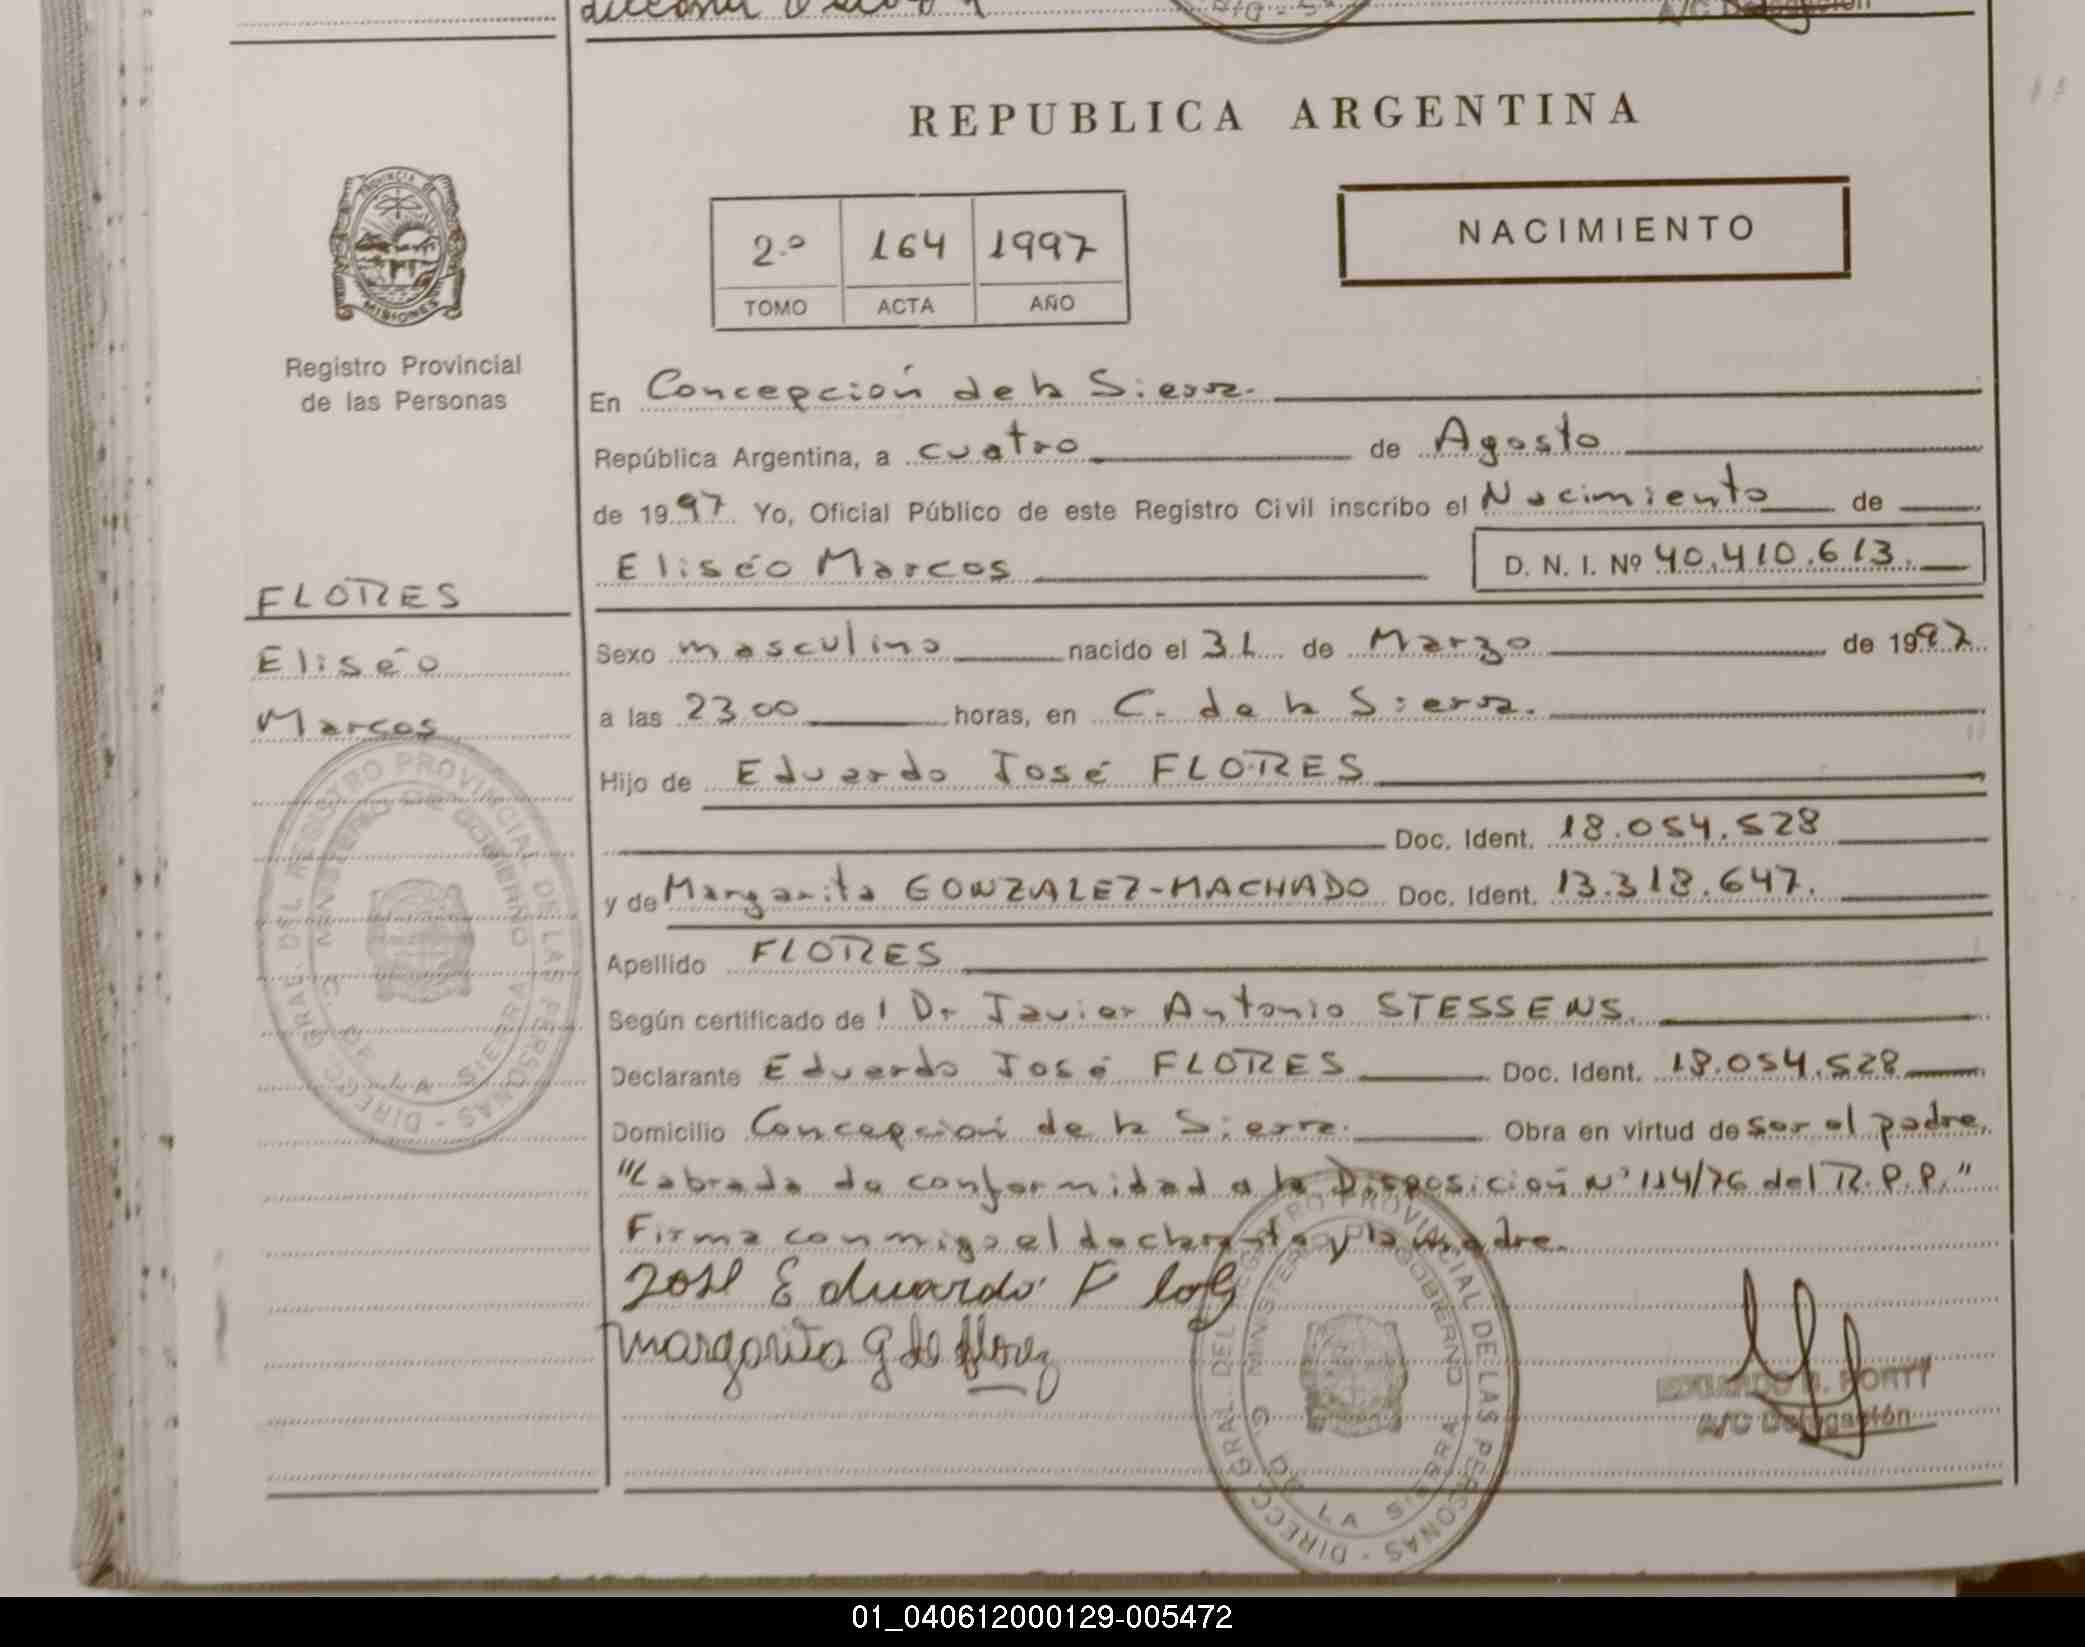 REPUBLICA ARGENTINA
NACIMIENTO
2.º 164 1997
TOMO ACTA AÑO
PROVINCIA DE
MISIONES
Registro Provincial
de las Personas
FLORES
Eliséo
Marcos
En Concepción de la Sierra.
República Argentina, a cuatro de Agosto
de 1997 Yo, Oficial Público de este Registro Civil inscribo el Nacimiento de
Eliséo Marcos D. N. I. Nº 40.410.613.
Sexo masculino nacido el 31 de Marzo de 1997
a las 23.00 horas, en C. de la Sierra.
Hijo de Eduardo José FLORES
Doc. Ident. 18.054.528
y de Margarita GONZALEZ-MACHADO Doc. Ident. 13.318.647.
Apellido FLORES
Según certificado del Dr Javier Antonio STESSENS.
Declarante Eduardo José FLORES Doc. Ident. 18.054.528
Domicilio Concepción de la Sierra. Obra en virtud de ser el padre.
"Labrada de conformidad a la Disposición Nº 114/76 del R.P.P."
Firma conmigo el declarante y la madre.
José Eduardo Flores
Margarita G de Florez
PORTT
A/C Delegación
DIRECC. GRAL. DEL REGISTRO PROVINCIAL DE LAS PERSONAS
MINISTERIO DE GOBIERNO
C. DE LA SIERRA
DIRECC. GRAL. DEL REGISTRO PROVINCIAL DE LAS PERSONAS
MINISTERIO DE GOBIERNO
C. DE LA SIERRA
01_040612000129-005472